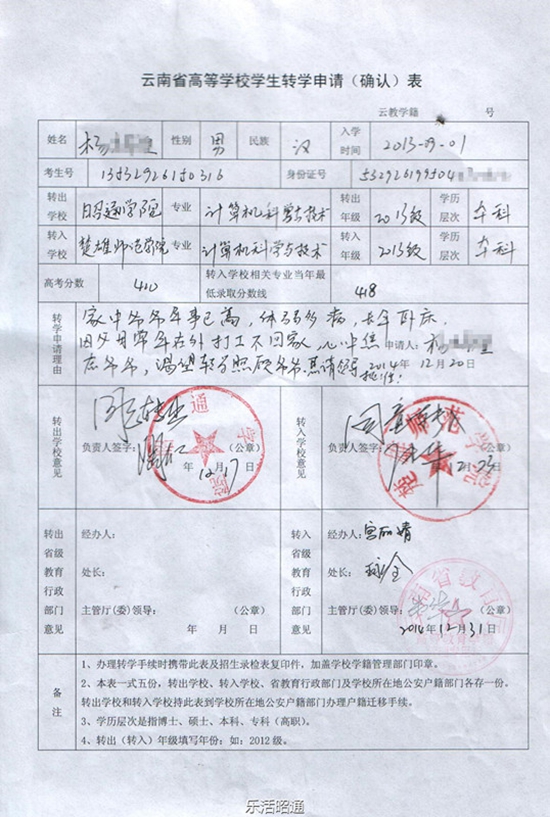 云南省高等学校学生转学申请（确认）表
云教学籍 号
姓名 杨 性别 男 民族 汉 入学时间 2013-09-01
考生号 13532926150316 身份证号 532926199504
转出学校 昭通学院 专业 计算机科学与技术 转出年级 2013级 学历层次 本科
转入学校 楚雄师范学院 专业 计算机科学与技术 转入年级 2013级 学历层次 本科
高考分数 410 转入学校相关专业当年最低录取分数线 418
转学申请理由
家中爷爷年事已高，体弱多病，长年卧床
因父母常年在外打工不回家，心中焦 申请人：杨
虑爷爷，渴望转学照顾爷爷。恳请领导批准！ 2014年12月20日
转出学校意见 同意转出
负责人签字： （公章）
年 12月17日
转入学校意见 同意
负责人签字： （公章）
12.25日
楚雄师范学院
转出省级教育行政部门意见
经办人：
处长：
主管厅(委)领导： （公章）
年 月 日
转入省级教育行政部门意见
经办人：
处长：
主管厅(委)领导： （公章）
2014年12月31日
备注
1、办理转学手续时携带此表及招生录检表复印件，加盖学校学籍管理部门印章。
2、本表一式五份，转出学校、转入学校、省教育行政部门及学校所在地公安户籍部门各存一份。
转出学校和转入学校持此表到学校所在地公安户籍部门办理户籍迁移手续。
3、学历层次是指博士、硕士、本科、专科（高职）。
4、转出（转入）年级填写年份：如：2012级。
乐活昭通